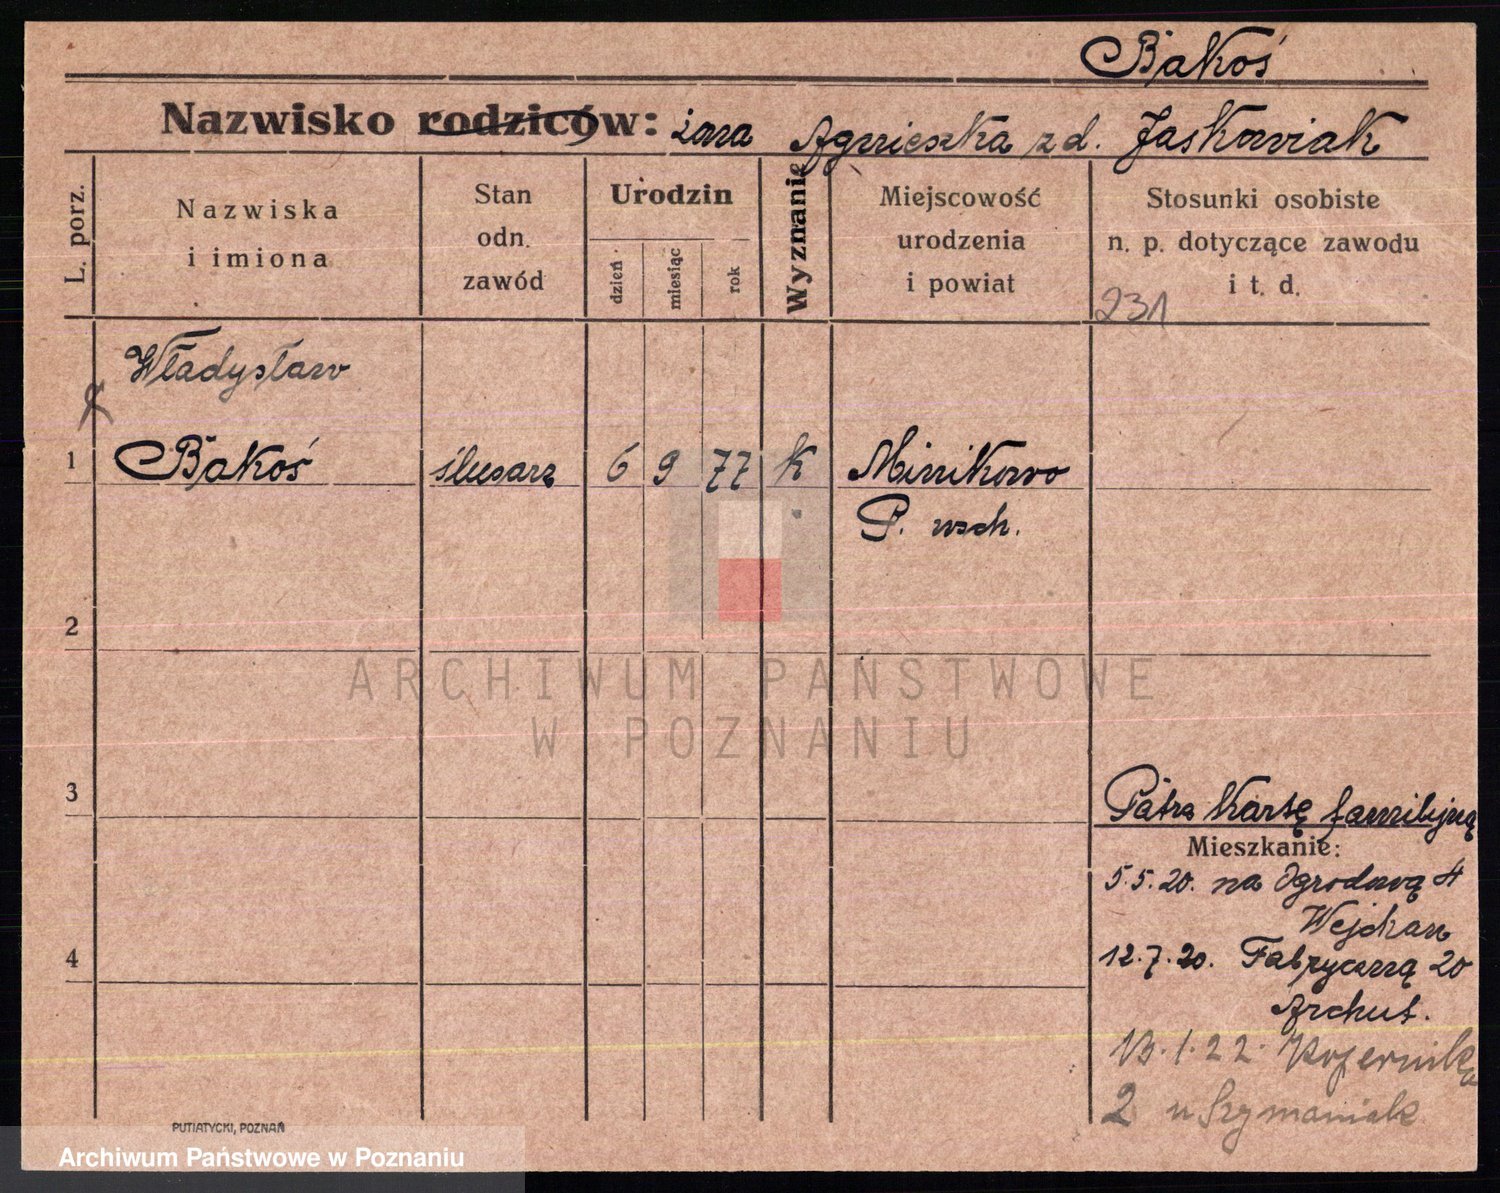 Bąkoś
Nazwisko rodziców: żona Agnieszka z d. Jaskowiak
L. porz.
Nazwiska
i imiona
Stan
odn.
zawód
Urodzin
dzień
miesiąc
rok
Wyznanie
Miejscowość
urodzenia
i powiat
Stosunki osobiste
n. p. dotyczące zawodu
i t. d.
231
Władysław
1 Bąkoś ślusarz 6 9 77 k Minikowo
P. wsch.
2
ARCHIWUM PAŃSTWOWE
W POZNANIU
3
Patrz kartę familijną
Mieszkanie:
5.5.20. na Ogrodową 4
Wejchan
4
12.7.20. Fabryczną 20
Archut.
13.1.22. Kopernika
2 u Szymaniak
PUTIATYCKI, POZNAŃ
Archiwum Państwowe w Poznaniu